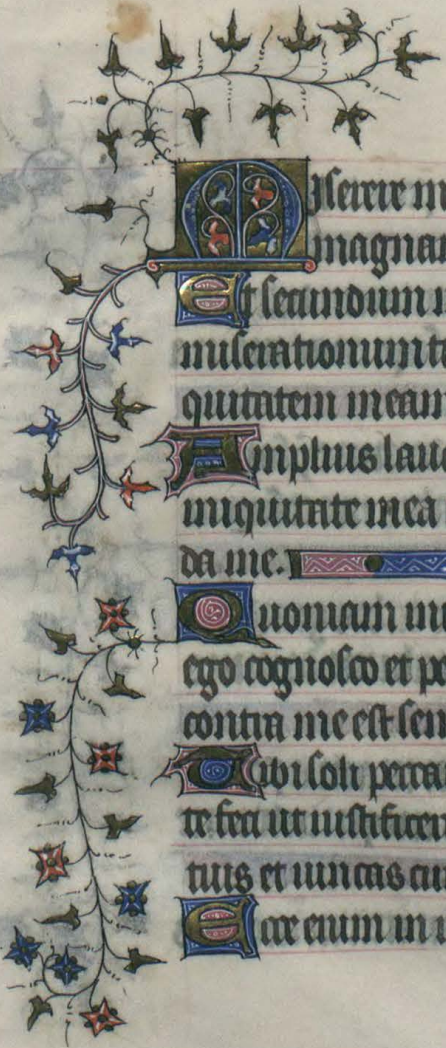 Miserere m
magnam
Et secundum m
miserationum t
quitatem meam
Amplius lau
iniquitate mea
da me.
Quoniam in
ego cognosco et pe
contra me est sem
Tibi soli pecca
te feci ut iustificer
tuis et vincas cu
Ecce enim in i